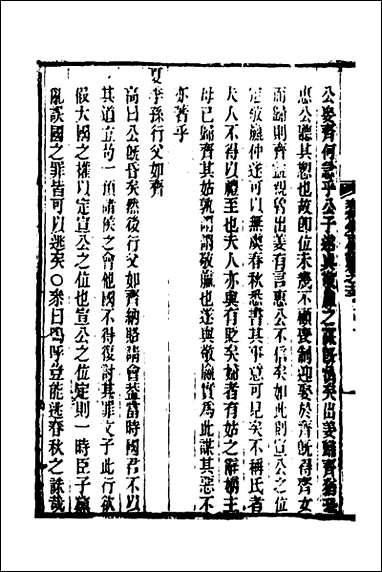 公娶齊何意乎公子遂與敬嬴之謀旣協矣出姜歸齊猶恐
惠公聽其愬也故卽位未幾不顧喪制迎娶於齊旣得齊女
而歸則齊益親皆出姜有言惠公不信矣如此則宣公之位
定敬嬴仲遂可以無虞春秋悉書其事意可見矣不稱氏者
夫人不得以禮至也夫人亦與有貶矣婦者有姑之辭嫡主
母已歸齊其姑孰謂謂敬嬴也遂與敬嬴實爲此謀其惡不
亦著乎
夏季孫行父如齊
高曰公旣昏矣然後行父如齊納賂請會蓋當時國君不以
其道立苟一預諸侯之會他國不得復討其罪文子此行欲
假大國之權以定宣公之位也宣公之位定則一時臣子竊
亂誤國之罪皆可以逃矣〇衆曰嗚呼豈能逃春秋之誅哉